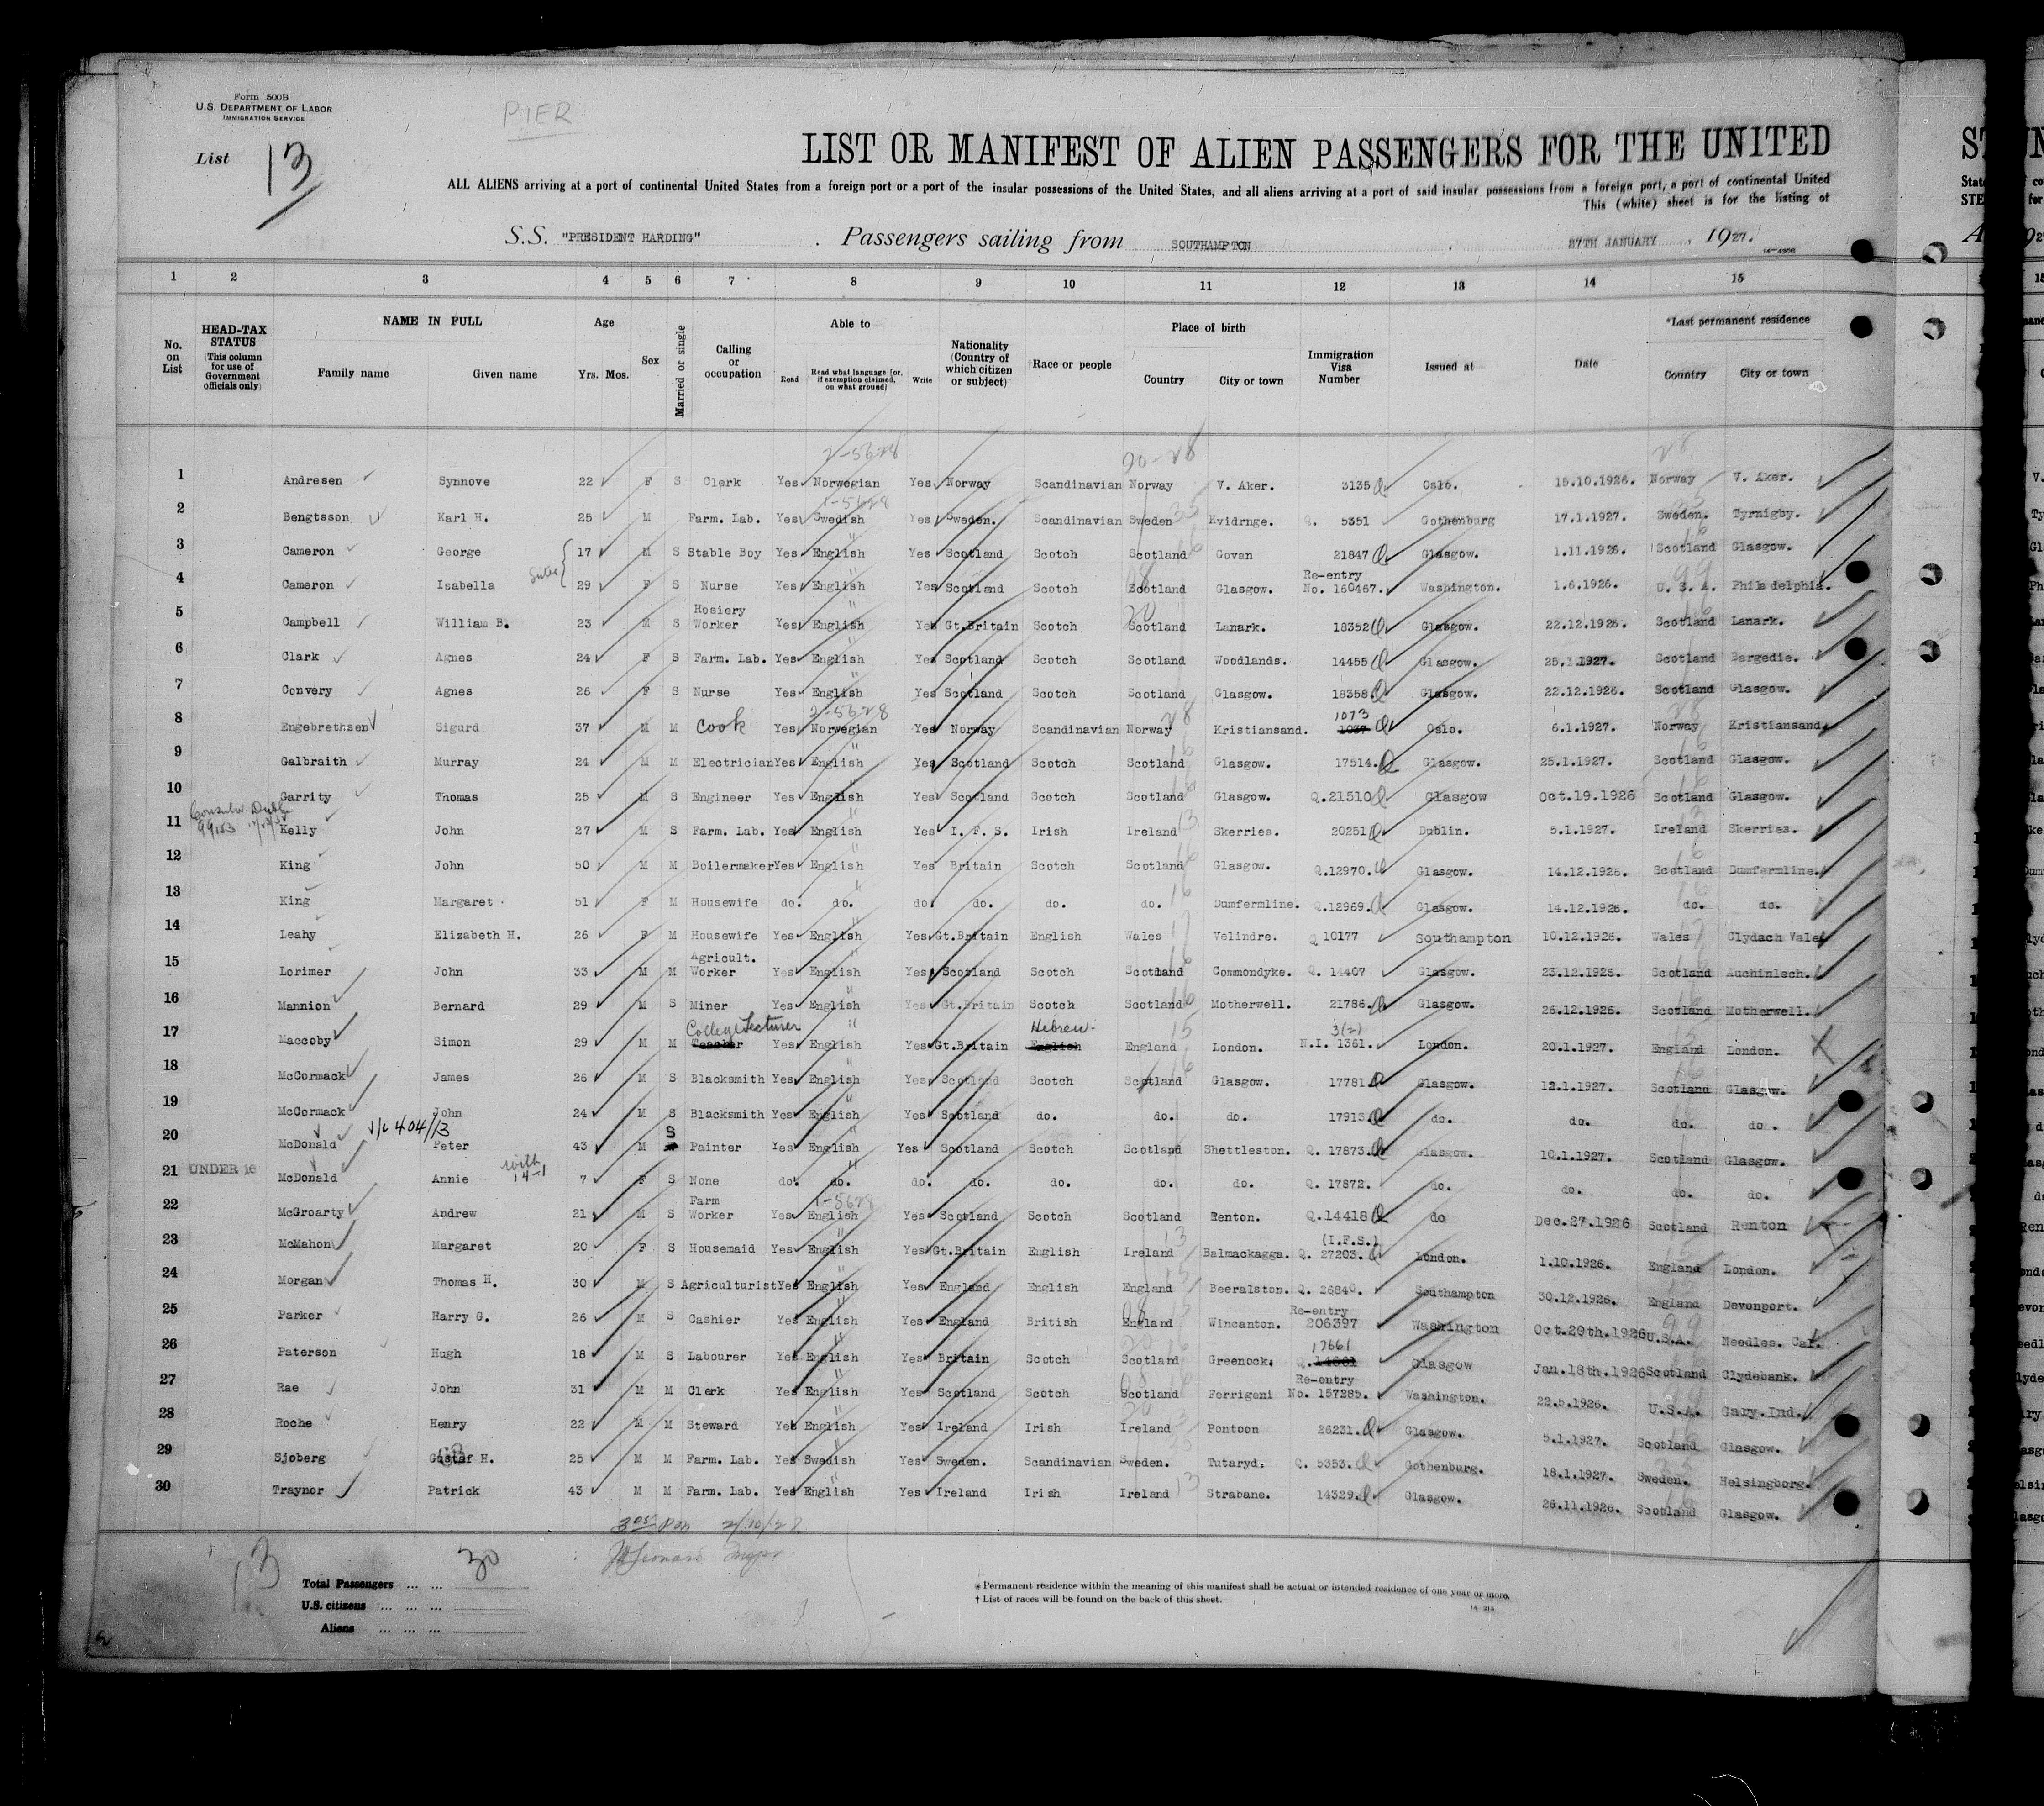 Form 500B
U.S. DEPARTMENT OF LABOR
IMMIGRATION SERVICE
PIER
List 13
LIST OR MANIFEST OF ALIEN PASSENGERS FOR THE UNITED
ALL ALIENS arriving at a port of continental United States from a foreign port or a port of the insular possessions of the United States, and all aliens arriving at a port of said insular possessions from a foreign port, a port of continental United
This (white) sheet is for the listing of
S.S. "PRESIDENT HARDING" . Passengers sailing from SOUTHAMPTON , 27TH JANUARY , 1927.
1 2 3 4 5 6 7 8 9 10 11 12 13 14 15
No. on List
HEAD-TAX STATUS (This column for use of Government officials only)
NAME IN FULL Family name Given name
Age Yrs. Mos.
Sex
Married or single
Calling or occupation
Able to Read Read what language (or, if exemption claimed, on what ground) Write
Nationality (Country of which citizen or subject)
Race or people
Place of birth Country City or town
Immigration Visa Number
Issued at
Date
*Last permanent residence Country City or town
2-5628 20-28 28
1 Andresen Synnove 22 F S Clerk Yes Norwegian Yes Norway Scandinavian Norway V. Aker. 3135 Oslo. 15.10.1926. Norway V. Aker.
1-5628
2 Bengtsson Karl H. 25 M Farm. Lab. Yes Swedish Yes Sweden. Scandinavian Sweden Hvidrnge. Q. 5351 Gothenburg 17.1.1927. Sweden. Tyrnigby.
3 Cameron George 17 M S Stable Boy Yes English Yes Scotland Scotch Scotland Govan 21847 Glasgow. 1.11.1926. Scotland Glasgow.
4 Cameron Isabella 29 F S Nurse Yes English Yes Scotland Scotch Scotland Glasgow. Re-entry No. 160467. Washington. 1.6.1926. U. S. A. Philadelphia.
5 Campbell William B. 23 M S Hosiery Worker Yes English Yes Gt.Britain Scotch Scotland Lanark. 18352 Glasgow. 22.12.1926. Scotland Lanark.
6 Clark Agnes 24 F S Farm. Lab. Yes English Yes Scotland Scotch Scotland Woodlands. 14455 Glasgow. 25.1.1927. Scotland Bargedie.
7 Convery Agnes 26 F S Nurse Yes English Yes Scotland Scotch Scotland Glasgow. 18358 Glasgow. 22.12.1926. Scotland Glasgow.
2-5628
8 Engebrethsen Sigurd 37 M M Cook Yes Norwegian Yes Norway Scandinavian Norway Kristiansand. 1073 1037 Oslo. 6.1.1927. Norway Kristiansand.
9 Galbraith Murray 24 M M Electrician Yes English Yes Scotland Scotch Scotland Glasgow. 17514. Glasgow. 25.1.1927. Scotland Glasgow.
10 Garrity Thomas 25 M S Engineer Yes English Yes Scotland Scotch Scotland Glasgow. Q.21510 Glasgow Oct.19.1926 Scotland Glasgow.
11 Kelly John 27 M S Farm. Lab. Yes English Yes I. F. S. Irish Ireland Skerries. 20251 Dublin. 5.1.1927. Ireland Skerries.
12 King John 50 M M Boilermaker Yes English Yes Britain Scotch Scotland Glasgow. Q.12970. Glasgow. 14.12.1926. Scotland Dumfermline.
13 King Margaret 51 F M Housewife do. do. do. do. do. do. Dumfermline. Q.12969. Glasgow. 14.12.1926. do. do.
14 Leahy Elizabeth H. 26 F M Housewife Yes English Yes Gt.Britain English Wales Velindre. Q 10177 Southampton 10.12.1926. Wales Clydach Vale
15 Lorimer John 33 M M Agricult. Worker Yes English Yes Scotland Scotch Scotland Commondyke. Q. 14407 Glasgow. 23.12.1926. Scotland Auchinlech.
16 Mannion Bernard 29 M S Miner Yes English Yes Gt.Britain Scotch Scotland Motherwell. 21786. Glasgow. 26.12.1926. Scotland Motherwell.
17 Maccoby Simon 29 M M College Lecturer Teacher Yes English Yes Gt.Britain Hebrew English England London. 3(2) N.I. 1361. London. 20.1.1927. England London.
18 McCormack James 26 M S Blacksmith Yes English Yes Scotland Scotch Scotland Glasgow. 17781. Glasgow. 12.1.1927. Scotland Glasgow.
19 McCormack John 24 M S Blacksmith Yes English Yes Scotland do. do. do. 17913. do. do. do. do.
V/L 404/13
20 McDonald Peter 43 M S Painter Yes English Yes Scotland Scotch Scotland Shettleston. Q. 17873. Glasgow. 10.1.1927. Scotland Glasgow.
21 UNDER 16 McDonald Annie with 14-1 7 F S None do. do. do. do. do. do. do. Q. 17872. do. do. do. do.
1-5628
22 McGroarty Andrew 21 M S Farm Worker Yes English Yes Scotland Scotch Scotland Renton. Q.14418 do Dec.27.1926 Scotland Renton
23 McMahon Margaret 20 F S Housemaid Yes English Yes Gt.Britain English Ireland Balmackagga. (I.F.S.) Q. 27203. London. 1.10.1926. England London.
24 Morgan Thomas H. 30 M S Agriculturist Yes English Yes England English England Beeralston. Q. 26840. Southampton 30.12.1926. England Devonport.
25 Parker Harry G. 26 M S Cashier Yes English Yes England British England Wincanton. Re-entry 206397 Washington Oct.20th.1926 U.S.A. Needles. Cal.
26 Paterson Hugh 18 M S Labourer Yes English Yes Britain Scotch Scotland Greenock. 17661 Q. Glasgow Jan.18th.1926 Scotland Clydebank.
27 Rae John 31 M M Clerk Yes English Yes Scotland Scotch Scotland Ferrigeni Re-entry No. 157285. Washington. 22.5.1926. U.S.A. Gary.Ind.
28 Roche Henry 22 M M Steward Yes English Yes Ireland Irish Ireland Pontoon 26231. Glasgow. 5.1.1927. Scotland Glasgow.
29 Sjoberg Gustaf H. 25 M M Farm. Lab. Yes Swedish Yes Sweden. Scandinavian Sweden. Tutaryd. Q. 5353. Gothenburg. 18.1.1927. Sweden. Helsingborg.
30 Traynor Patrick 43 M M Farm. Lab. Yes English Yes Ireland Irish Ireland Strabane. 14329. Glasgow. 26.11.1926. Scotland Glasgow.
13
Total Passengers ... ... 30
U.S. citizens ... ... ...
Aliens ... ... ...
* Permanent residence within the meaning of this manifest shall be actual or intended residence of one year or more.
† List of races will be found on the back of this sheet.